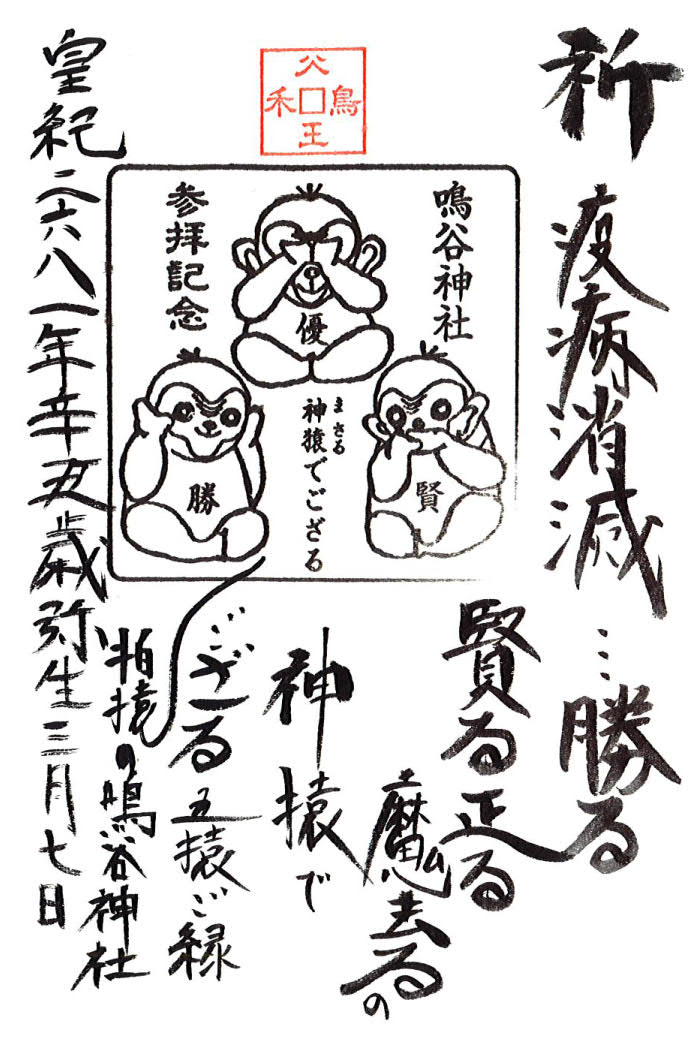 祈
疫病消滅…勝る
賢る正る
魔去るの
神猿で
ござる 五猿ご縁
拍猿の鳴谷神社
皇紀二六八一年辛丑歳弥生三月七日
鳴谷神社
参拝記念
優
賢
勝
神猿でござる
まさる